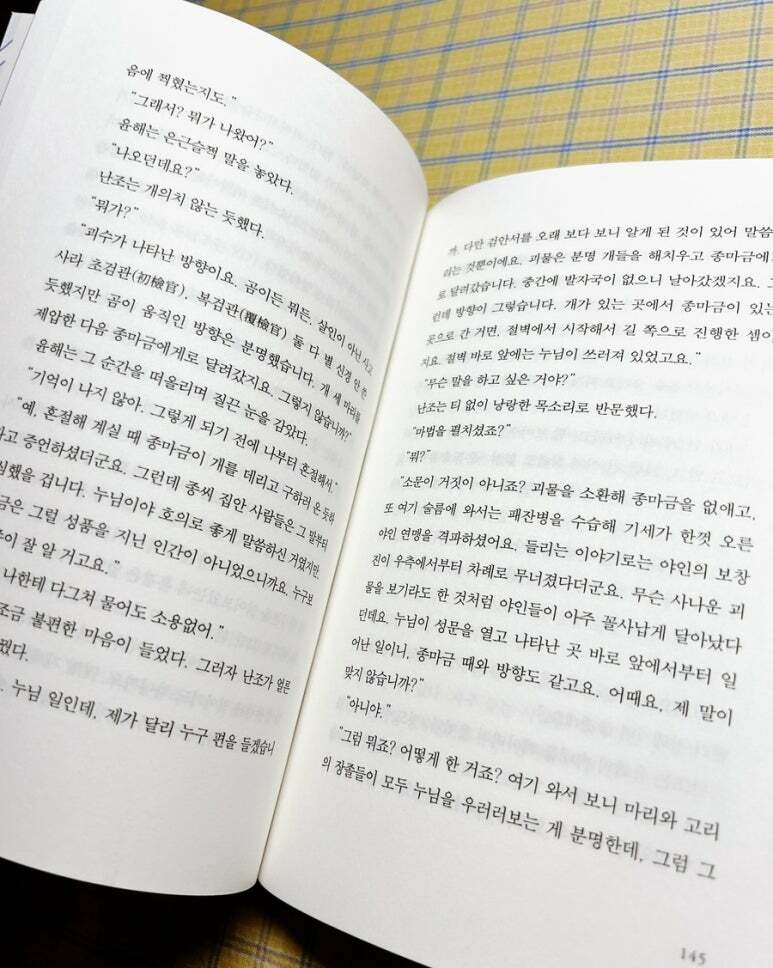 음에 찍혔는지도."
"그래서? 뭐가 나왔어?"
윤해는 은근슬쩍 말을 놓았다.
"나오던데요?"
난조는 개의치 않는 듯했다.
"뭐가?"
"괴수가 나타난 방향이요. 곰이든 뭐든, 살인이 아닌 사고
사라 초검관(初檢官), 복검관(覆檢官) 둘 다 별 신경 안 쓴
듯했지만 곰이 움직인 방향은 분명했습니다. 개 세 마리를
제압한 다음 종마금에게로 달려갔지요. 그렇지 않습니까?"
윤해는 그 순간을 떠올리며 질끈 눈을 감았다.
"기억이 나지 않아. 그렇게 되기 전에 나부터 혼절해서."
"예, 혼절해 계실 때 종마금이 개를 데리고 구하러 온 듯하
고 증언하셨더군요. 그런데 종씨 집안 사람들은 그 말부터
심했을 겁니다. 누님이야 호의로 좋게 말씀하신 거였지만,
금은 그럴 성품을 지닌 인간이 아니었으니까요. 누구보
이 잘 알 거고요."
나한테 다그쳐 물어도 소용없어."
조금 불편한 마음이 들었다. 그러자 난조가 얼른
꿨다.
누님 일인데, 제가 달리 누구 편을 들겠습니
까. 다만 검안서를 오래 보다 보니 알게 된 것이 있어 말씀
하는 것뿐이에요. 괴물은 분명 개들을 해치우고 종마금에
로 달려갔습니다. 중간에 발자국이 없으니 날아갔겠지요. 그
런데 방향이 그렇습니다. 개가 있는 곳에서 종마금이 있는
곳으로 간 거면, 절벽에서 시작해서 길 쪽으로 진행한 셈이
지요. 절벽 바로 앞에는 누님이 쓰러져 있었고요."
"무슨 말을 하고 싶은 거야?"
난조는 티 없이 낭랑한 목소리로 반문했다.
"마법을 펼치셨죠?"
"뭐?"
"소문이 거짓이 아니죠? 괴물을 소환해 종마금을 없애고,
또 여기 술름에 와서는 패잔병을 수습해 기세가 한껏 오른
야인 연맹을 격파하셨어요. 들리는 이야기로는 야인의 보창
진이 우측에서부터 차례로 무너졌다더군요. 무슨 사나운 괴
물을 보기라도 한 것처럼 야인들이 아주 꼴사납게 달아났다
던데요. 누님이 성문을 열고 나타난 곳 바로 앞에서부터 일
어난 일이니, 종마금 때와 방향도 같고요. 어때요, 제 말이
맞지 않습니까?"
"아니야."
"그럼 뭐죠? 어떻게 한 거죠? 여기 와서 보니 마리와 고리
의 장졸들이 모두 누님을 우러러보는 게 분명한데, 그럼 그
145